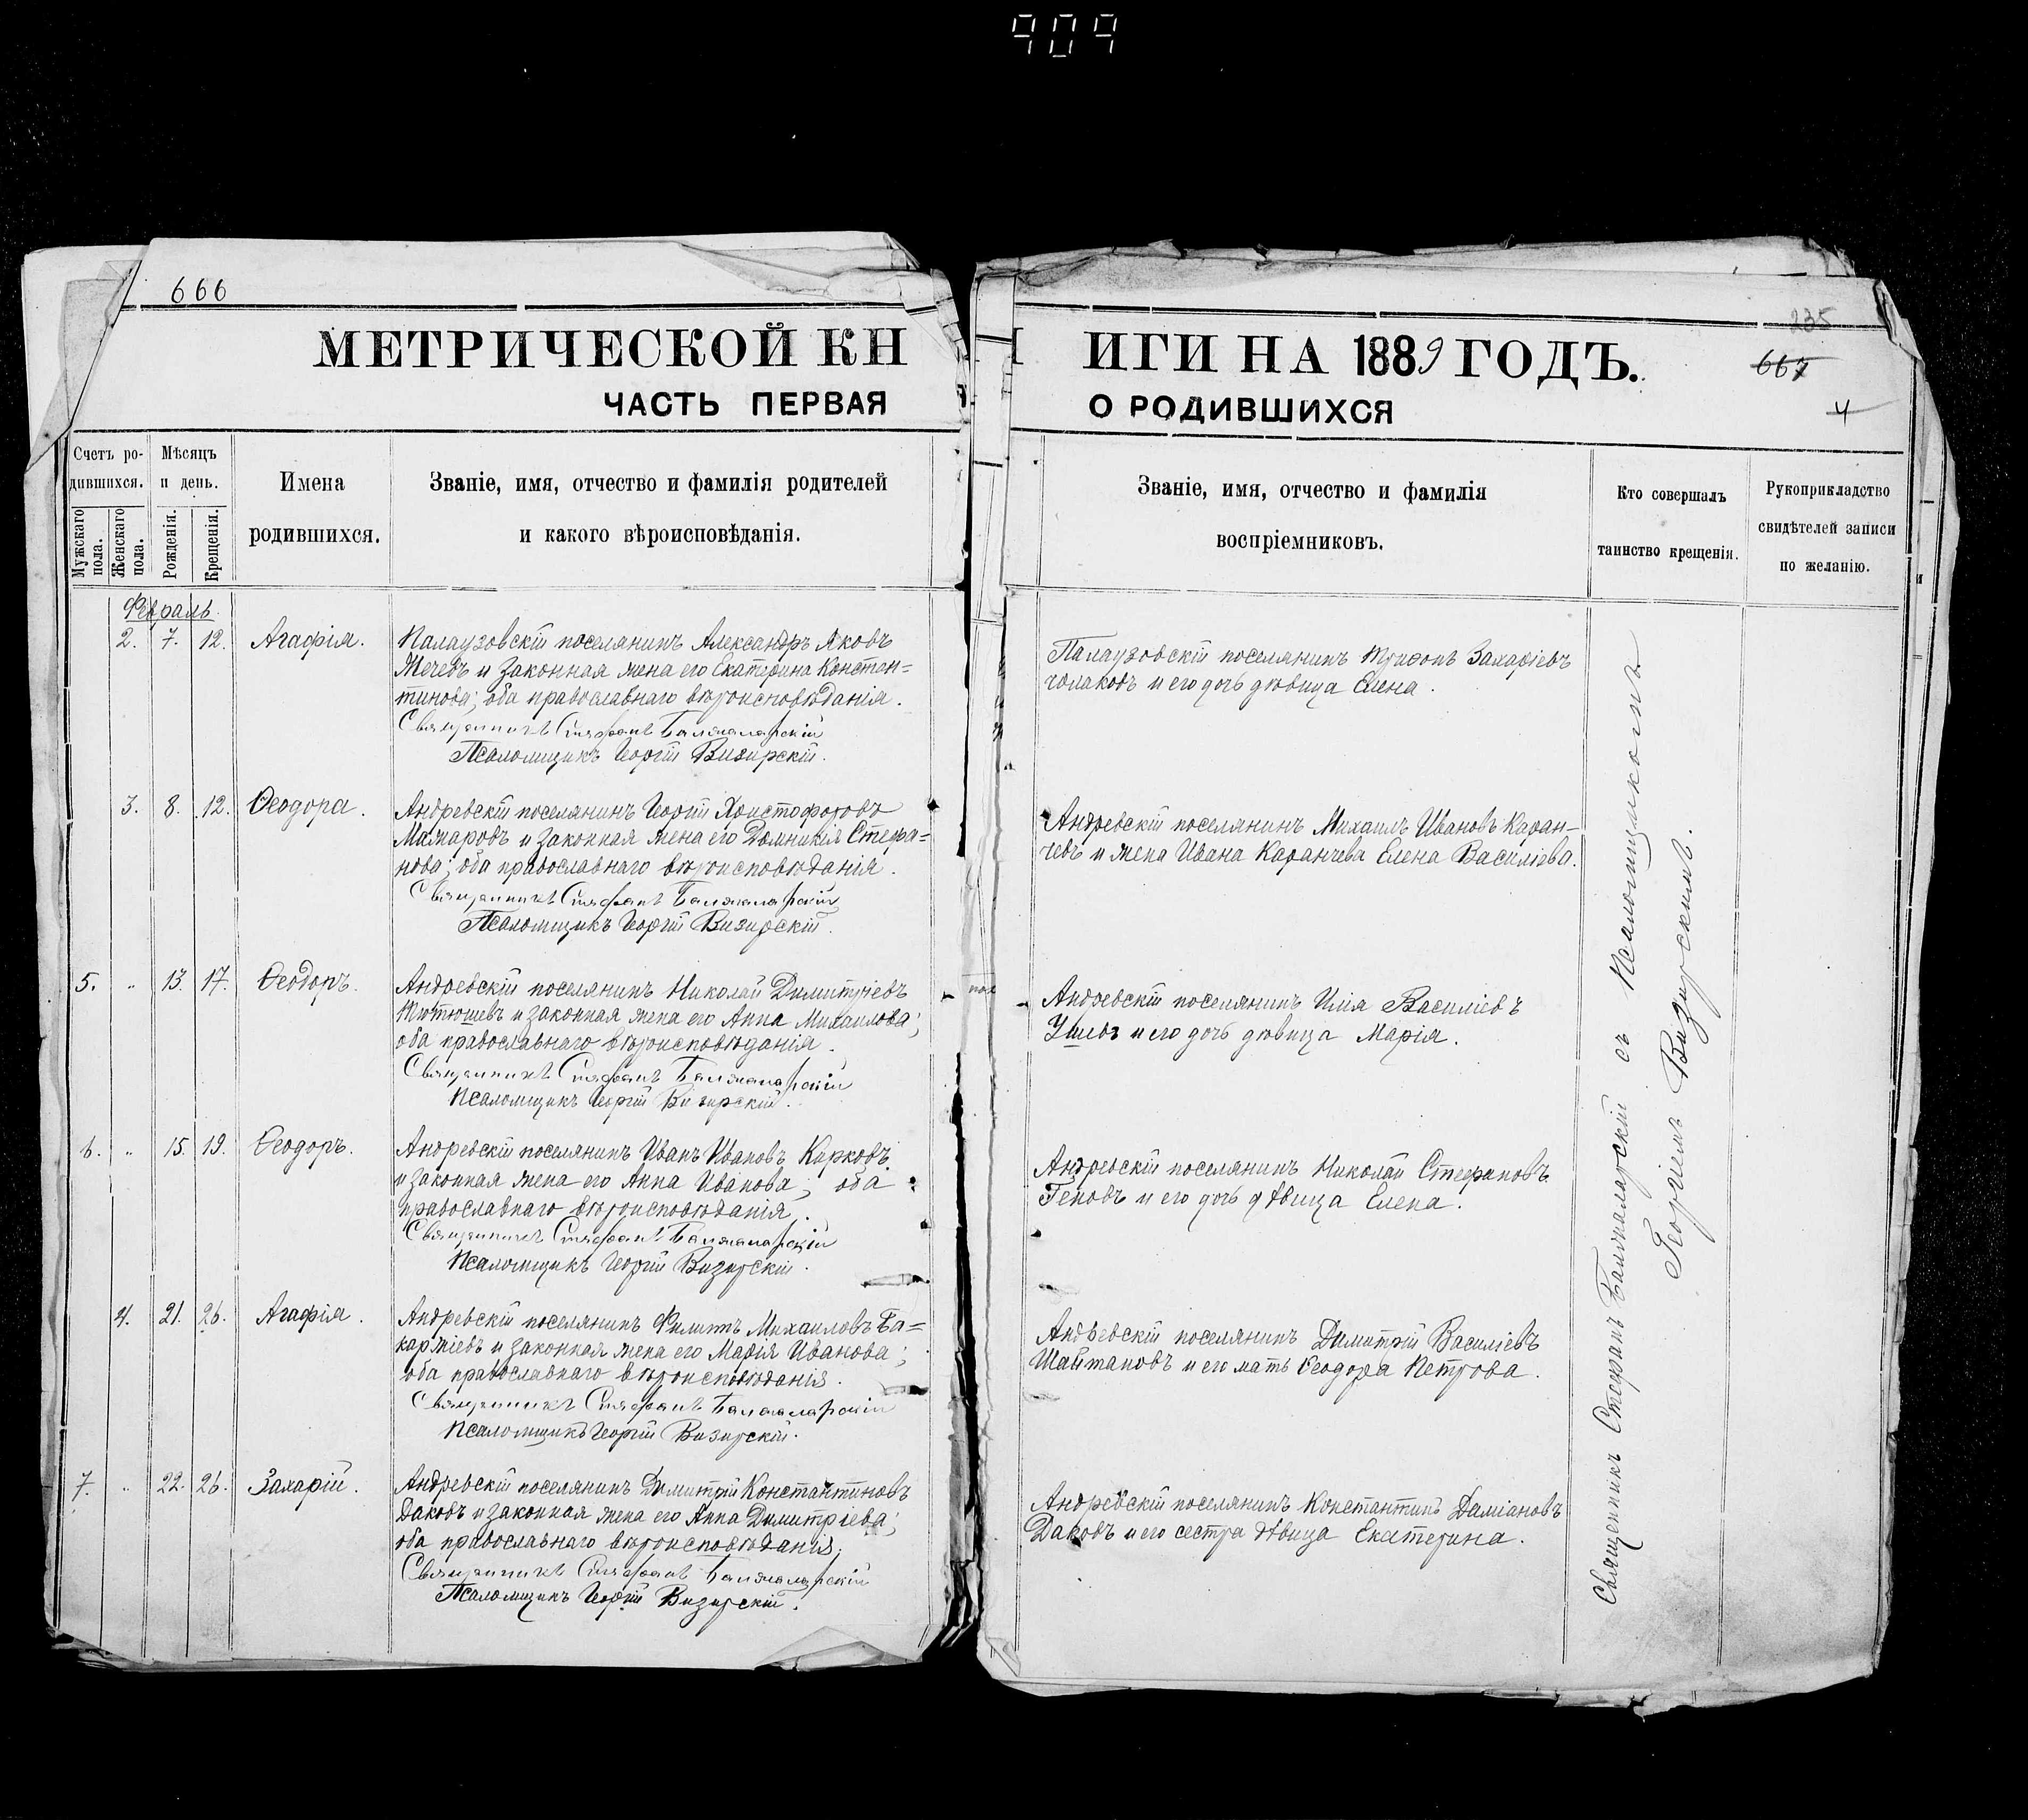 909
666
МЕТРИЧЕСКОЙ КН
ЧАСТЬ ПЕРВАЯ
Счетъ ро-
дившихся.
Мужскаго пола.
Женскаго пола.
Мѣсяцъ
и день.
Рожденія.
Крещенія.
Имена
родившихся.
Званіе, имя, отчество и фамилія родителей
и какого вѣроисповѣданія.
Февраль
2. 7. 12. Агафія. Палаузовскій поселянинъ Александръ Яковъ
Мечевъ и законная жена его Екатерина Констан=
тинова; оба православнаго вѣроисповѣданія.
Священникъ Стефанъ Балжаларскій
Псаломщикъ Георгій Визирскій.
3. 8. 12. Ѳеодора. Андревскій поселянинъ Георгій Христофоровъ
Мамаровъ и законная жена его Домникія Стефа=
нова; оба православнаго вѣроисповѣданія.
Священникъ Стефанъ Балжаларскій
Псаломщикъ Георгій Визирскій.
5. " 13. 17. Ѳеодоръ. Андревскій поселянинъ Николай Димитріевъ
Тютюшевъ и законная жена его Анна Михаилова;
оба православнаго вѣроисповѣданія.
Священникъ Стефанъ Балжаларскій
Псаломщикъ Георгій Визирскій.
6. " 15. 19. Ѳеодоръ. Андревскій поселянинъ Иванъ Ивановъ Карковъ
и законная жена его Анна Иванова; оба
православнаго вѣроисповѣданія.
Священникъ Стефанъ Балжаларскій
Псаломщикъ Георгій Визирскій.
4. 21. 26. Агафія. Андревскій поселянинъ Филиппъ Михаиловъ Ба=
каржіевъ и законная жена его Марія Иванова;
оба православнаго вѣроисповѣданія.
Священникъ Стефанъ Балжаларскій
Псаломщикъ Георгій Визирскій.
7. " 22. 26. Захарій. Андревскій поселянинъ Димитрій Константиновъ
Даковъ и законная жена его Анна Димитріева;
оба православнаго вѣроисповѣданія.
Священникъ Стефанъ Балжаларскій
Псаломщикъ Георгій Визирскій.
235
667
4
ИГИ НА 1889 ГОДЪ.
О РОДИВШИХСЯ
Званіе, имя, отчество и фамилія
воспріемниковъ.
Кто совершалъ
таинство крещенія.
Рукоприкладство
свидѣтелей записи
по желанію.
Палаузовскій поселянинъ Трифонъ Захаріевъ
Чолаковъ и его дочь дѣвица Елена.
Андревскій поселянинъ Михаилъ Ивановъ Каран-
чевъ и жена Ивана Каранчева Елена Василіева.
Андревскій поселянинъ Илія Василіевъ
Ушевъ и его дочь дѣвица Марія.
Андревскій поселянинъ Николай Стефановъ
Геновъ и его дочь дѣвица Елена.
Андревскій поселянинъ Димитрій Василіевъ
Шайтановъ и его мать Ѳеодора Петрова.
Андревскій поселянинъ Константинъ Даміановъ
Даковъ и его сестра дѣвица Екатерина.
Священникъ Стефанъ Балжаларскій съ Псаломщикомъ
Георгіемъ Визирскимъ.